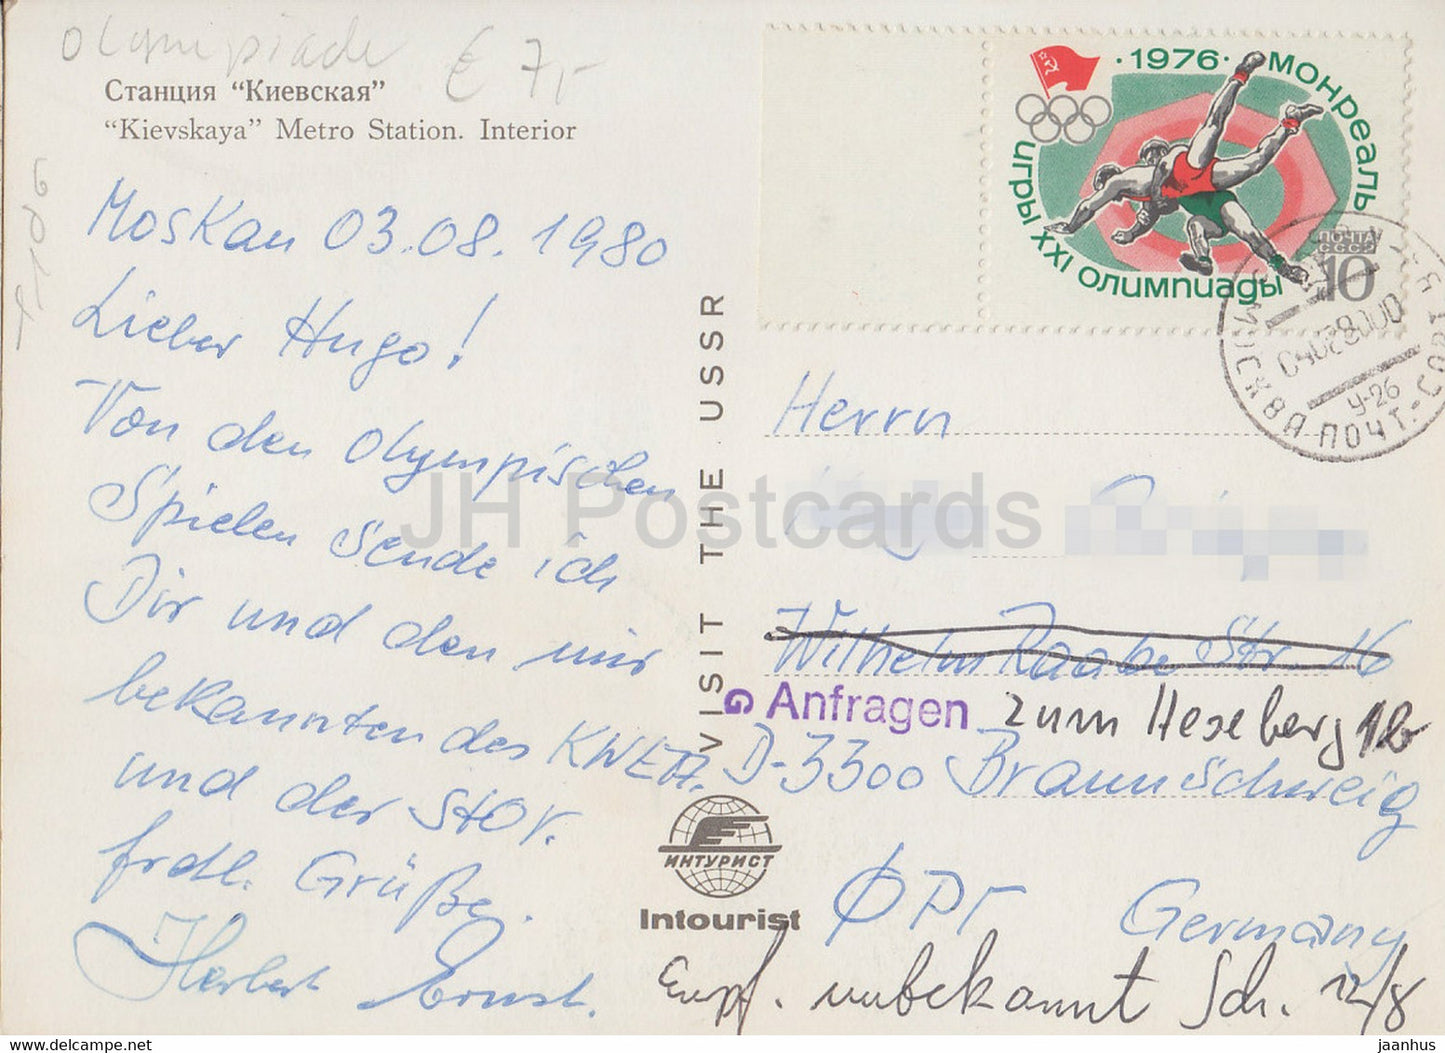 Olympiade € 7,-
Станция "Киевская"
"Kievskaya" Metro Station. Interior
Moskau 03.08.1980
Lieber Hugo!
Von den Olympischen
Spielen sende ich
Dir und den mir
bekannten des KWEA.
und der StOV.
frdl. Grüße.
Herbert Ernst.
VISIT THE USSR
ИНТУРИСТ
Intourist
1976 · МОНРЕАЛЬ
ИГРЫ XXI ОЛИМПИАДЫ
ПОЧТА
СССР
10
МОСКВА ПОЧТ.
У-26
Herrn
Wilhelm Raabe Str. 16
Anfragen zum Heseberg 12b
D-3300 Braunschweig
ФРГ Germany
Empf. unbekannt Sch. 12/8
JH Postcards
eu.delcampe.net
jaanhus